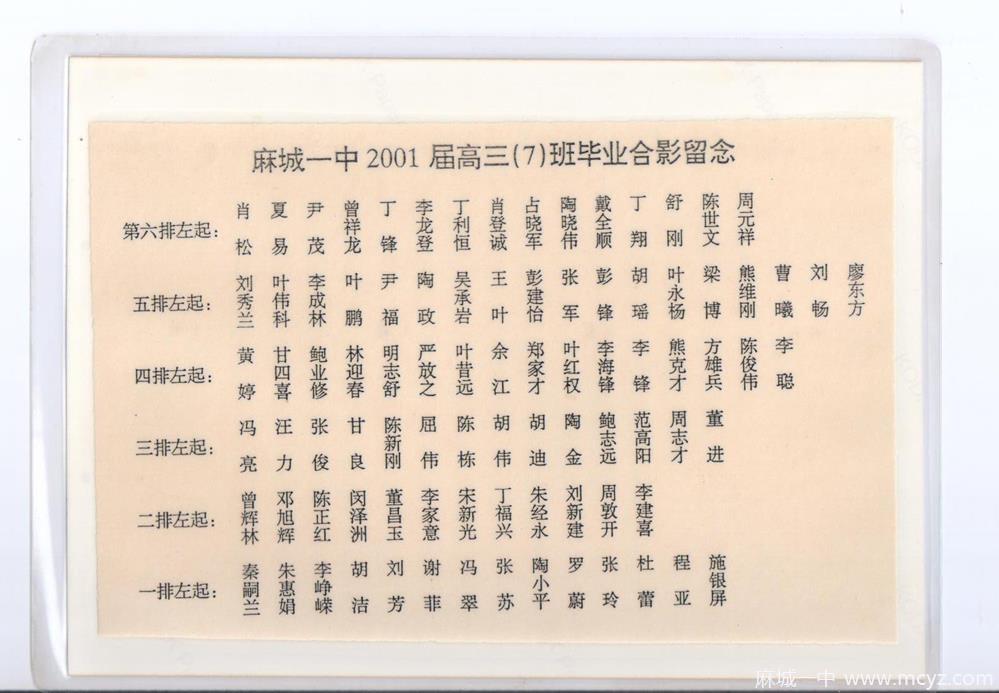 麻城一中 2001 届高三(7)班毕业合影留念
第六排左起: 肖松 夏易 尹茂 曾祥龙 丁锋 李龙登 丁利恒 肖登诚 占晓军 陶晓伟 戴全顺 丁翔 舒刚 陈世文 周元祥
五排左起: 刘秀兰 叶伟科 李成林 叶鹏 尹福 陶政 吴承岩 王叶 彭建怡 张军 彭锋 胡瑶 叶永杨 梁博 熊维刚 曹曦 刘畅 廖东方
四排左起: 黄婷 甘四喜 鲍业修 林迎春 明志舒 严放之 叶昔远 余江 郑家才 叶红权 李海锋 李锋 熊克才 方雄兵 陈俊伟 李聪
三排左起: 冯亮 汪力 张俊 甘良 陈新刚 屈伟 陈栋 胡伟 胡迪 陶金 鲍志远 范高阳 周志才 董进
二排左起: 曾辉林 邓旭辉 陈正红 闵泽洲 董昌玉 李家意 宋新光 丁福兴 朱经永 刘新建 周敦开 李建喜
一排左起: 秦嗣兰 朱惠娟 李峥嵘 胡洁 刘芳 谢菲 冯翠 张苏 陶小平 罗蔚 张玲 杜蕾 程亚 施银屏
麻城一中 www.mcyz.com